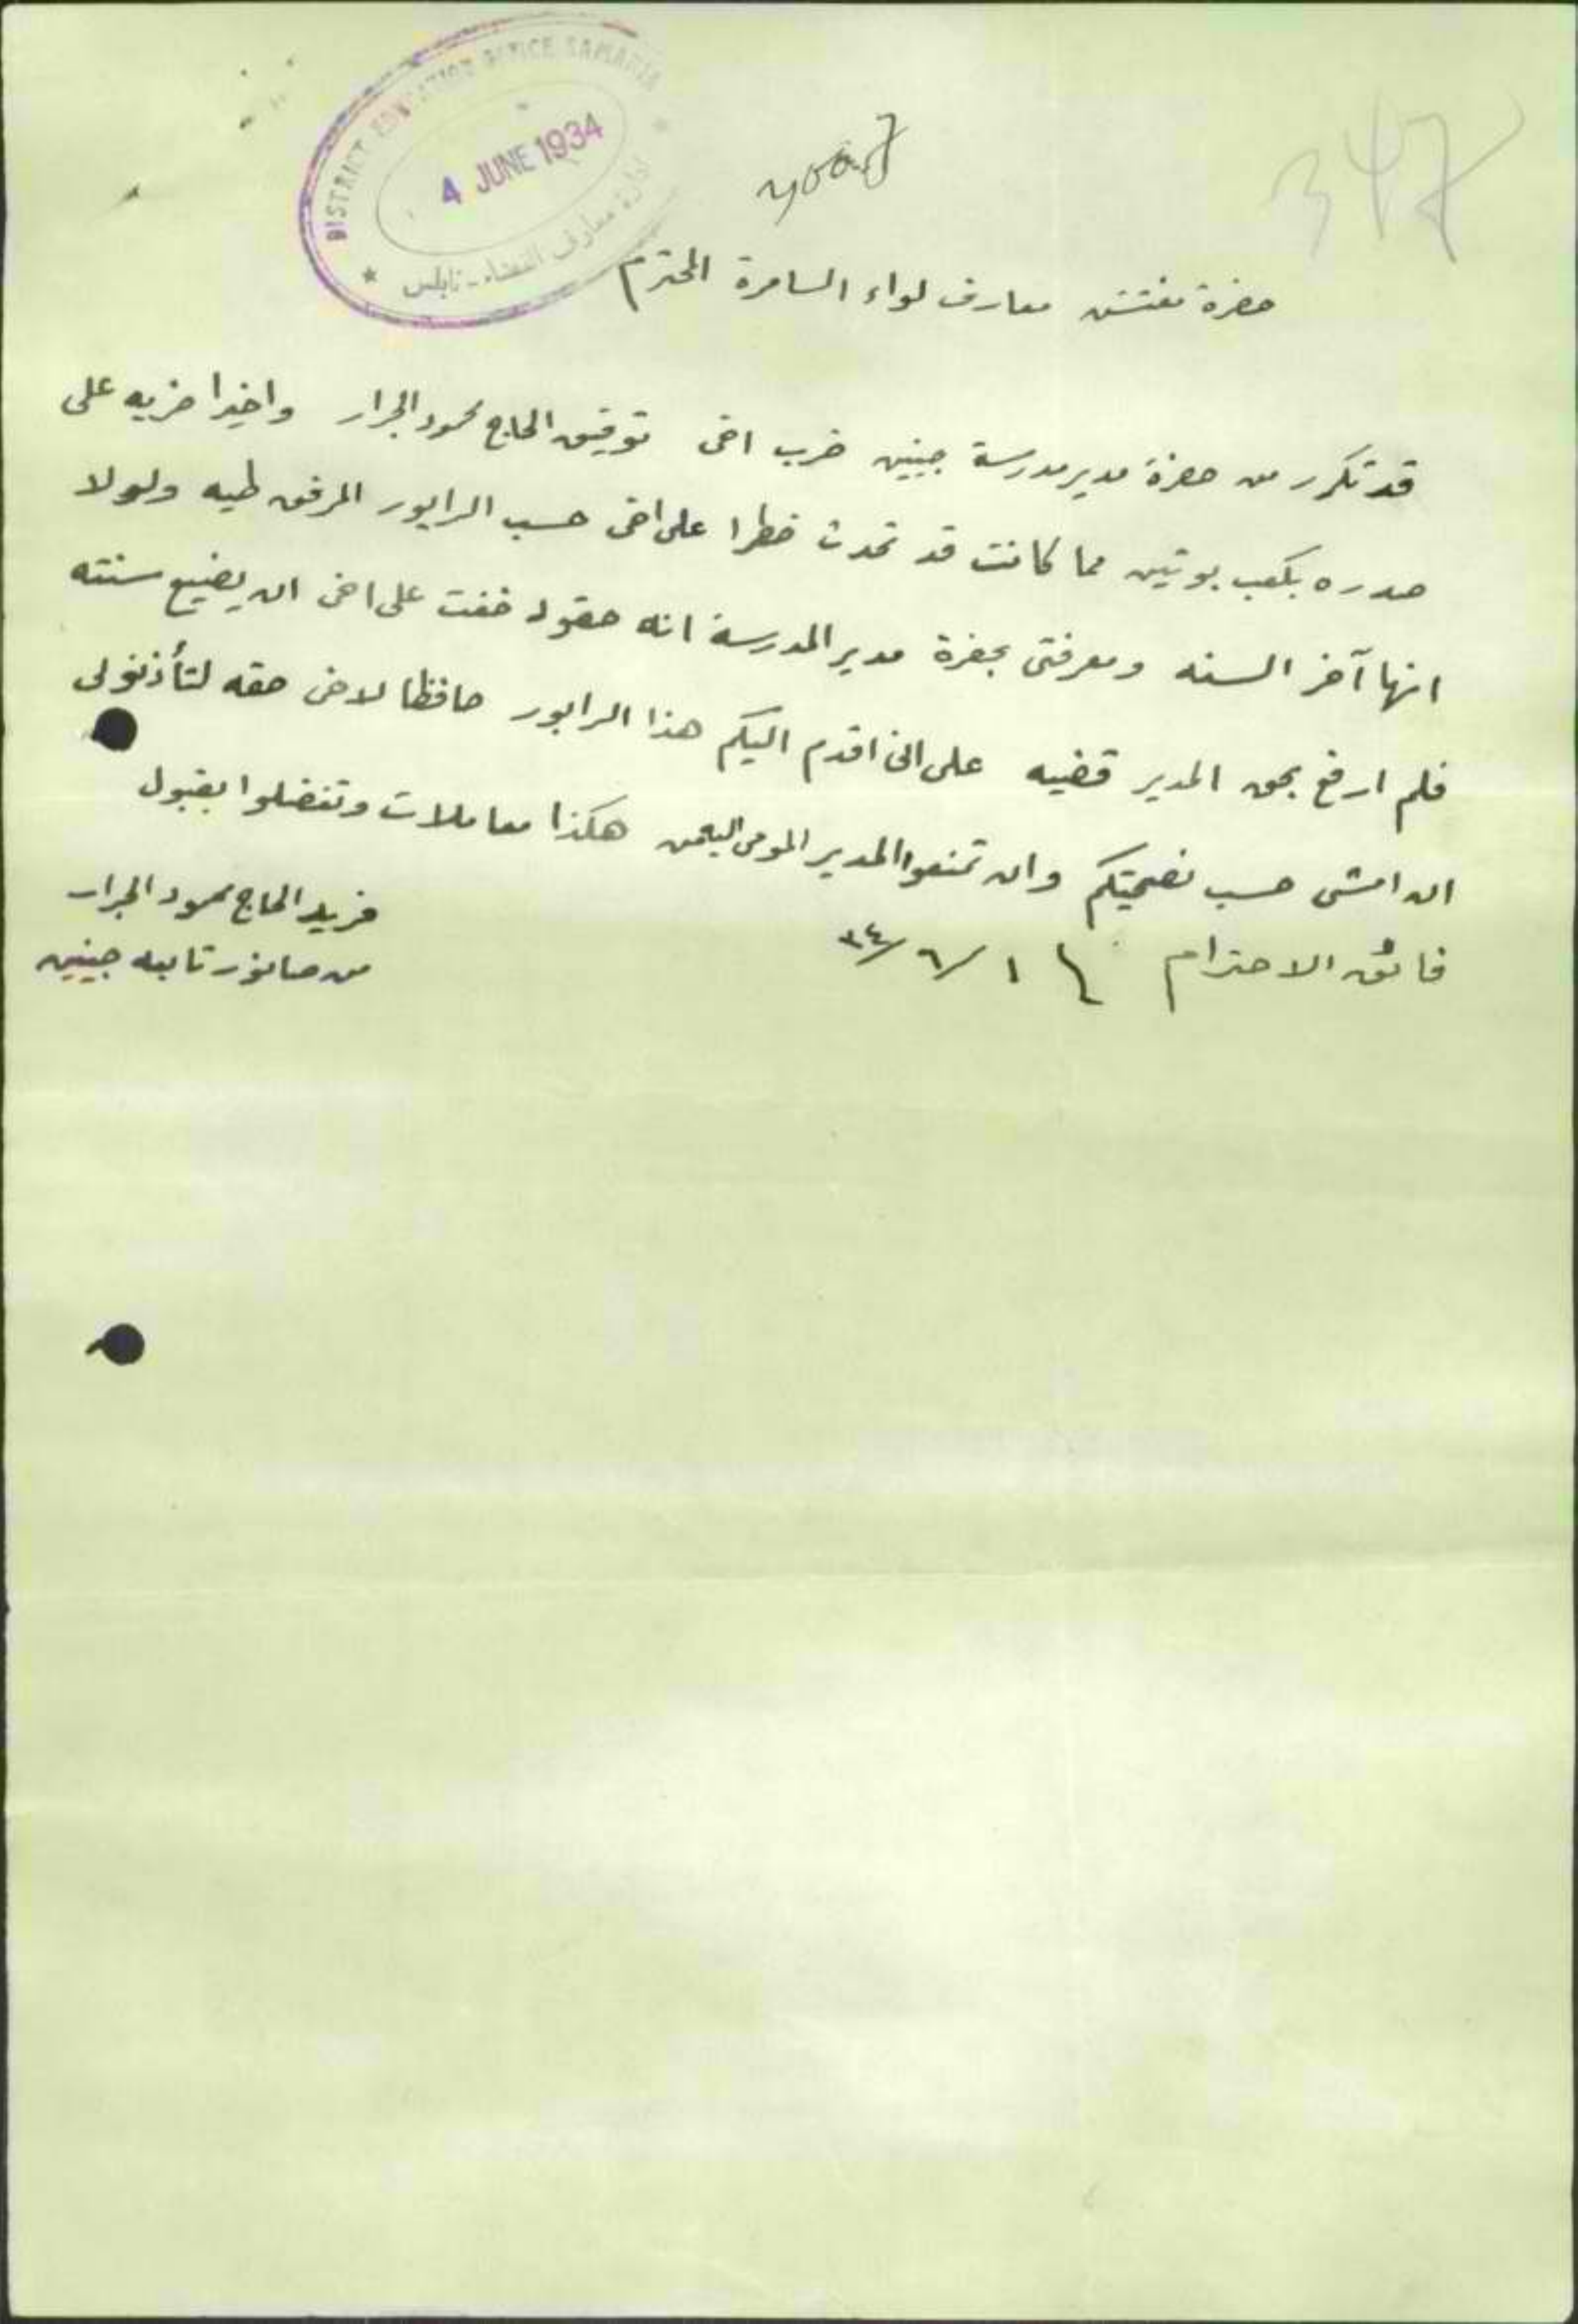 DISTRICT EDUCATION OFFICE SAMARIA
4 JUNE 1934
ادارة معارف القضاء - نابلس
347
حضرة مفتش معارف لواء السامرة المحترم
قد تكرر من حضرة مدير مدرسة جينين ضرب اخي توفيق الحاج محمود الجرار واخيرا ضربه على
صدره بكعب بوتين مما كانت قد تحدث خطرا على اخي حسب الرابور المرفق طيه ولولا
انها آخر السنه ومعرفتي بحضرة مدير المدرسة انه حقود خفت على اخي ان يضيع سنته
فلم ارفع بحق المدير قضيه على اني اقدم اليكم هذا الرابور حافظا لاخي حقه لتأذنو لي
ان امشي حسب نصيحتكم وان تمنعوا المدير المومى اليه من هكذا معاملات وتفضلوا بقبول
فائق الاحترام ١/٦/٣٤
فريد الحاج محمود الجرار
من صانور تابعه جينين